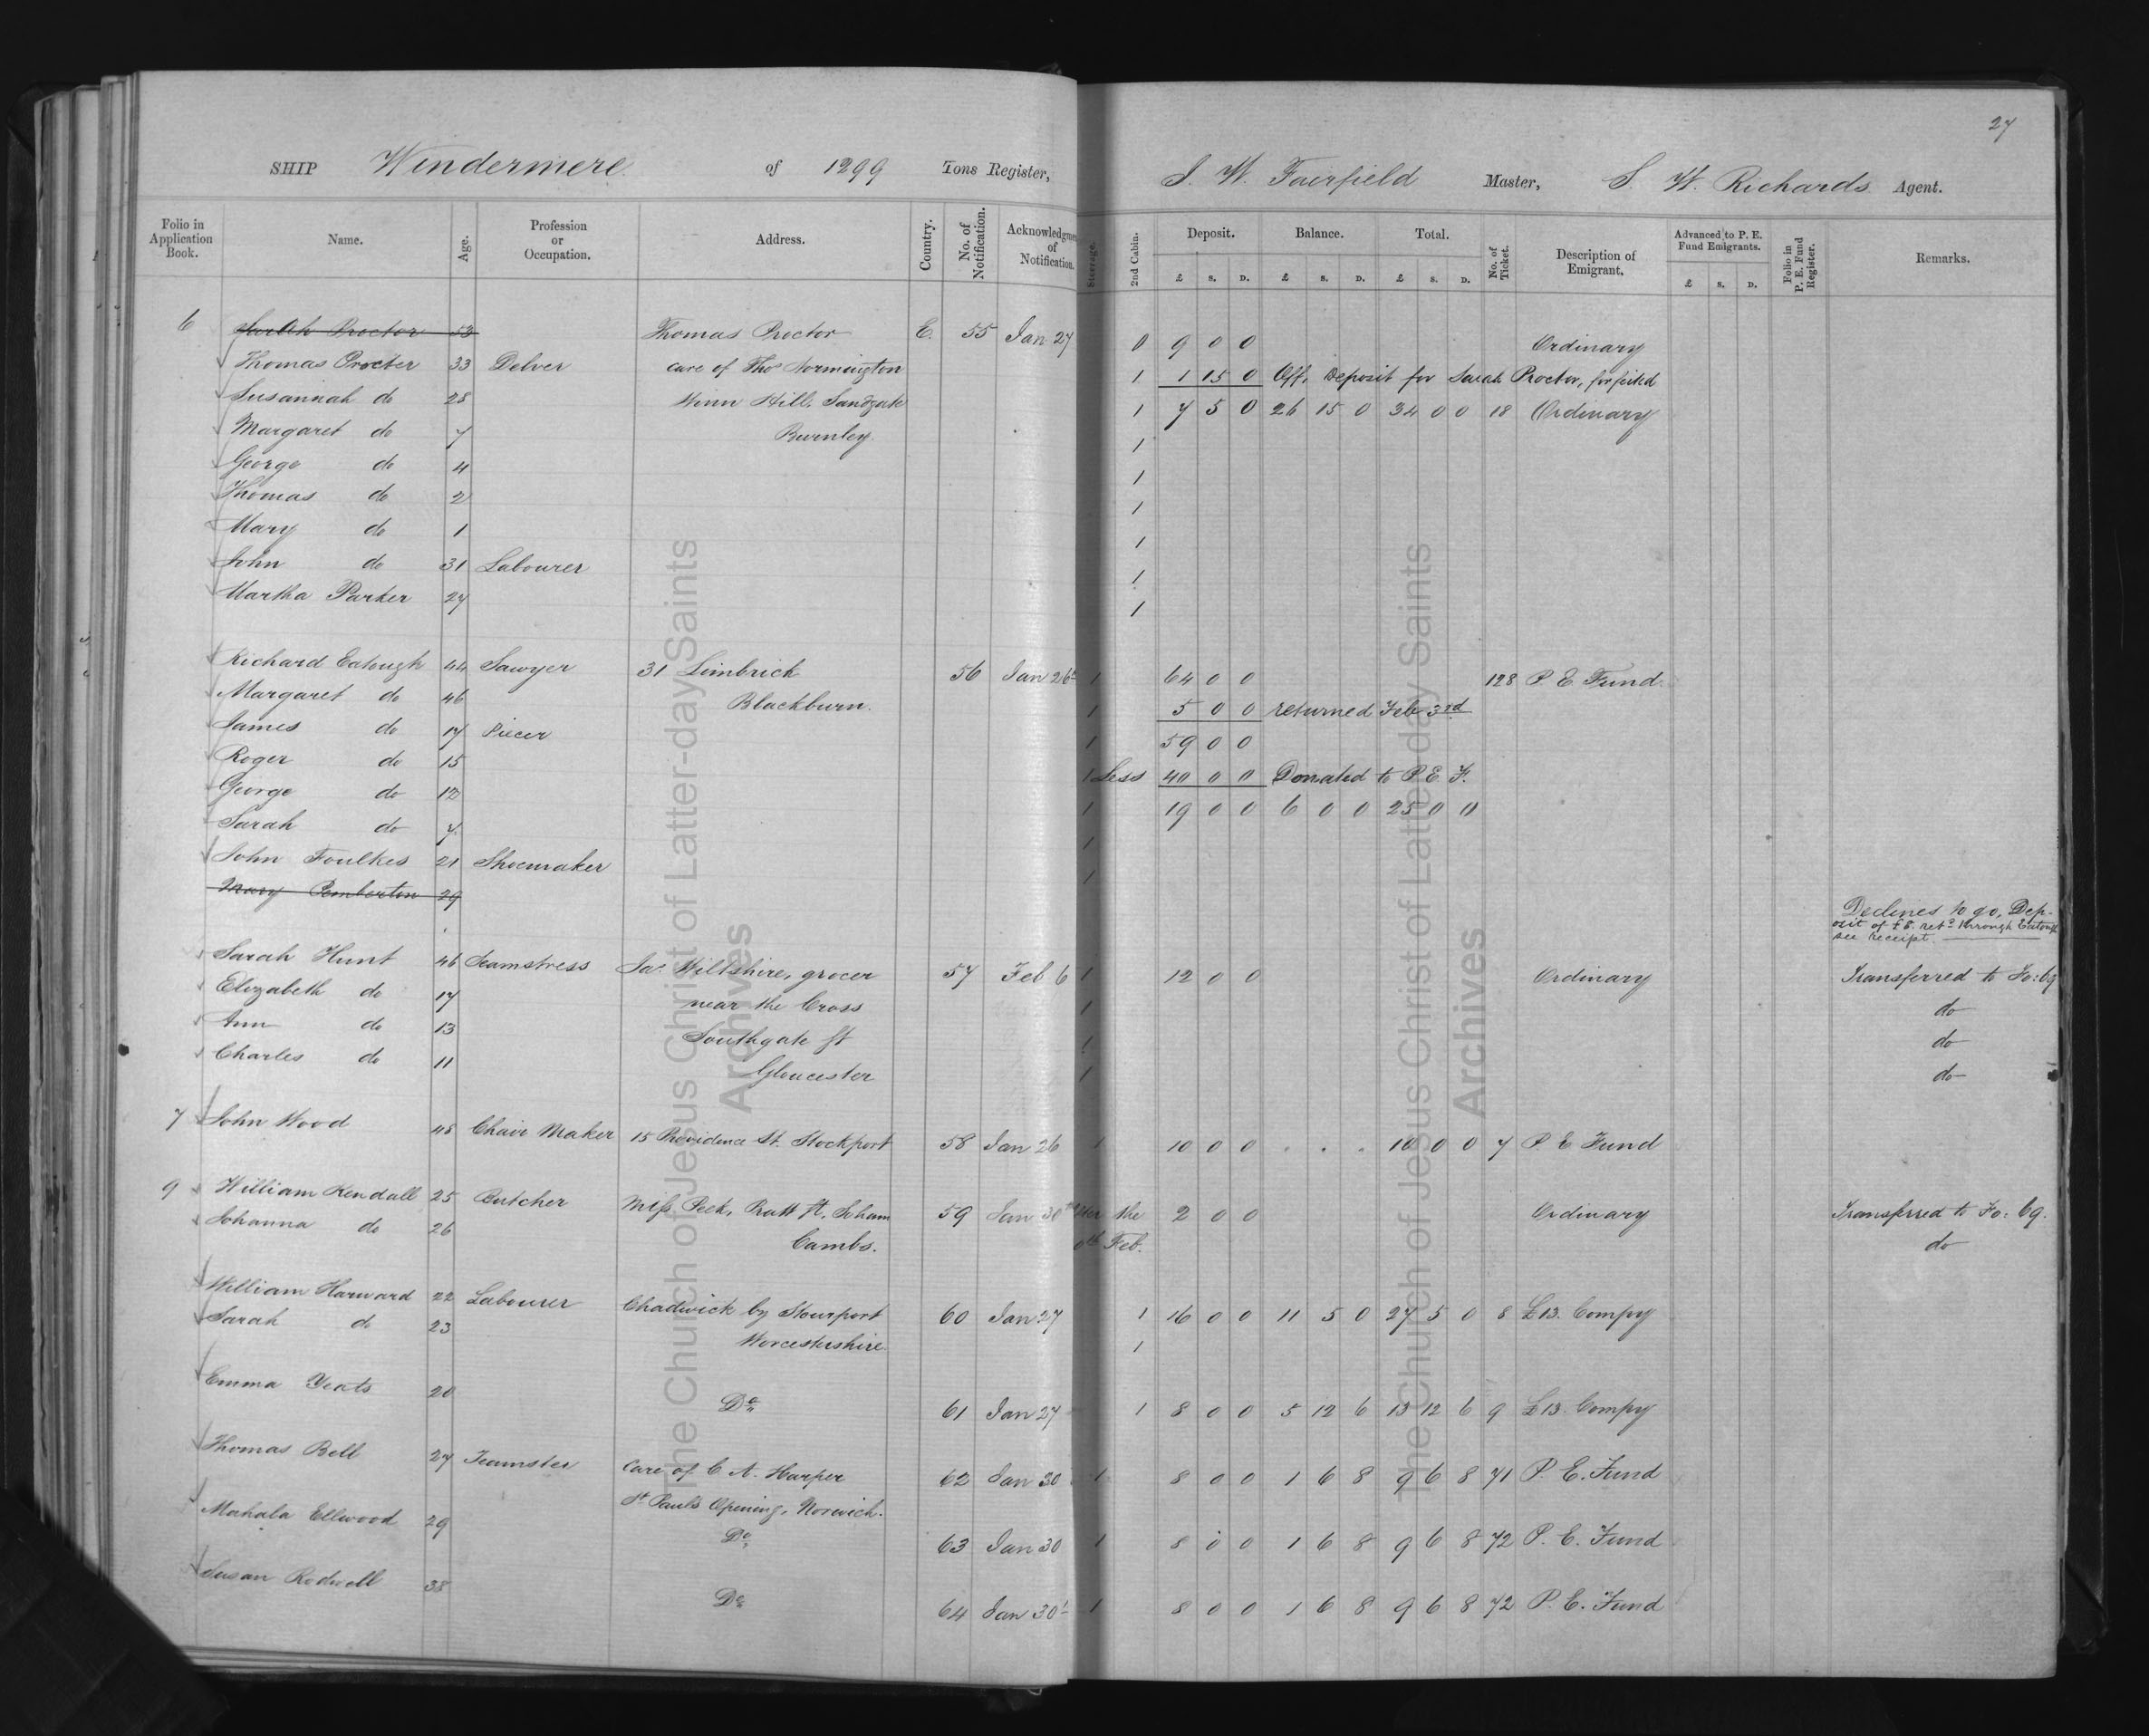 27
SHIP Windermere of 1299 Tons Register, J. W. Fairfield Master, S. W. Richards Agent.
Folio in Application Book. Name. Age. Profession or Occupation. Address. Country. No. of Notification. Acknowledgment of Notification. Steerage. 2nd Cabin. Deposit. £ s. D. Balance. £ s. D. Total. £ s. D. No. of Ticket. Description of Emigrant. Advanced to P. E. Fund Emigrants. £ s. D. Folio in P. E. Fund Register. Remarks.
6 Sarah Proctor 53 Thomas Proctor E. 55 Jan 27 0 9 0 0 Ordinary
Thomas Procter 33 Delver care of Thos Normington 1 1 15 0 Off, Deposit for Sarah Proctor, forfeited
Susannah do 28 Hill, Sandgate 1 7 5 0 26 15 0 34 0 0 18 Ordinary
Margaret do 7 Burnley. 1
George do 4 1
Thomas do 2 1
Mary do 1 1
John do 31 Labourer 1
Martha Parker 27 1
Richard Eatough 44 Sawyer 31 Limbrick 56 Jan 26 1 64 0 0 128 P. E. Fund.
Margaret do 46 Blackburn. 1 5 0 0 returned Feb 3rd
James do 17 Piecer 1 59 0 0
Roger do 15 1 Less 40 0 0 Donated to P E F.
George do 12 1 19 0 0 6 0 0 25 0 0
Sarah do 7 1
John Foulkes 21 Shoemaker 1
Mary Pemberton 29
Declines to go, Dep-
osit of £5. retd through Eatough
see receipt
Sarah Hunt 46 Seamstress Jas. Wiltshire, grocer 57 Feb 6 1 12 0 0 Ordinary Transferred to Fo: 69
Elizabeth do 17 near the Cross 1 do
Ann do 13 Southgate St 1 do
Charles do 11 Gloucester 1 do
7 John Wood 45 Chair Maker 15 Providence St. Stockport 58 Jan 26 1 10 0 0 . . . 10 0 0 7 P. E Fund
9 William Kendall 25 Butcher Peck, Pratt St, Soham 59 Jan 30 the 2 0 0 Ordinary Transferred to Fo: 69.
Johanna do 26 Cambs. Feb. do
William Harward 22 Labourer Chadwick by Stourport 60 Jan 27 1 16 0 0 11 5 0 27 5 0 8 £13. Compy
Sarah do 23 Worcestershire. 1
Emma Yeats 20 Do 61 Jan 27 1 8 0 0 5 12 6 13 12 6 9 £13. Compy
Thomas Bell 27 Teamster Care of C A. Harper 62 Jan 30 1 8 0 0 1 6 8 9 6 8 71 P. E. Fund
St Pauls Opening, Norwich.
Mahala Ellwood 29 Do 63 Jan 30 1 8 0 0 1 6 8 9 6 8 72 P. E. Fund
Susan Rodwell 38 Do 64 Jan 30 1 8 0 0 1 6 8 9 6 8 72 P. E. Fund
The Church of Jesus Christ of Latter-day Saints
Archives
The Church of Jesus Christ of Latter-day Saints
Archives